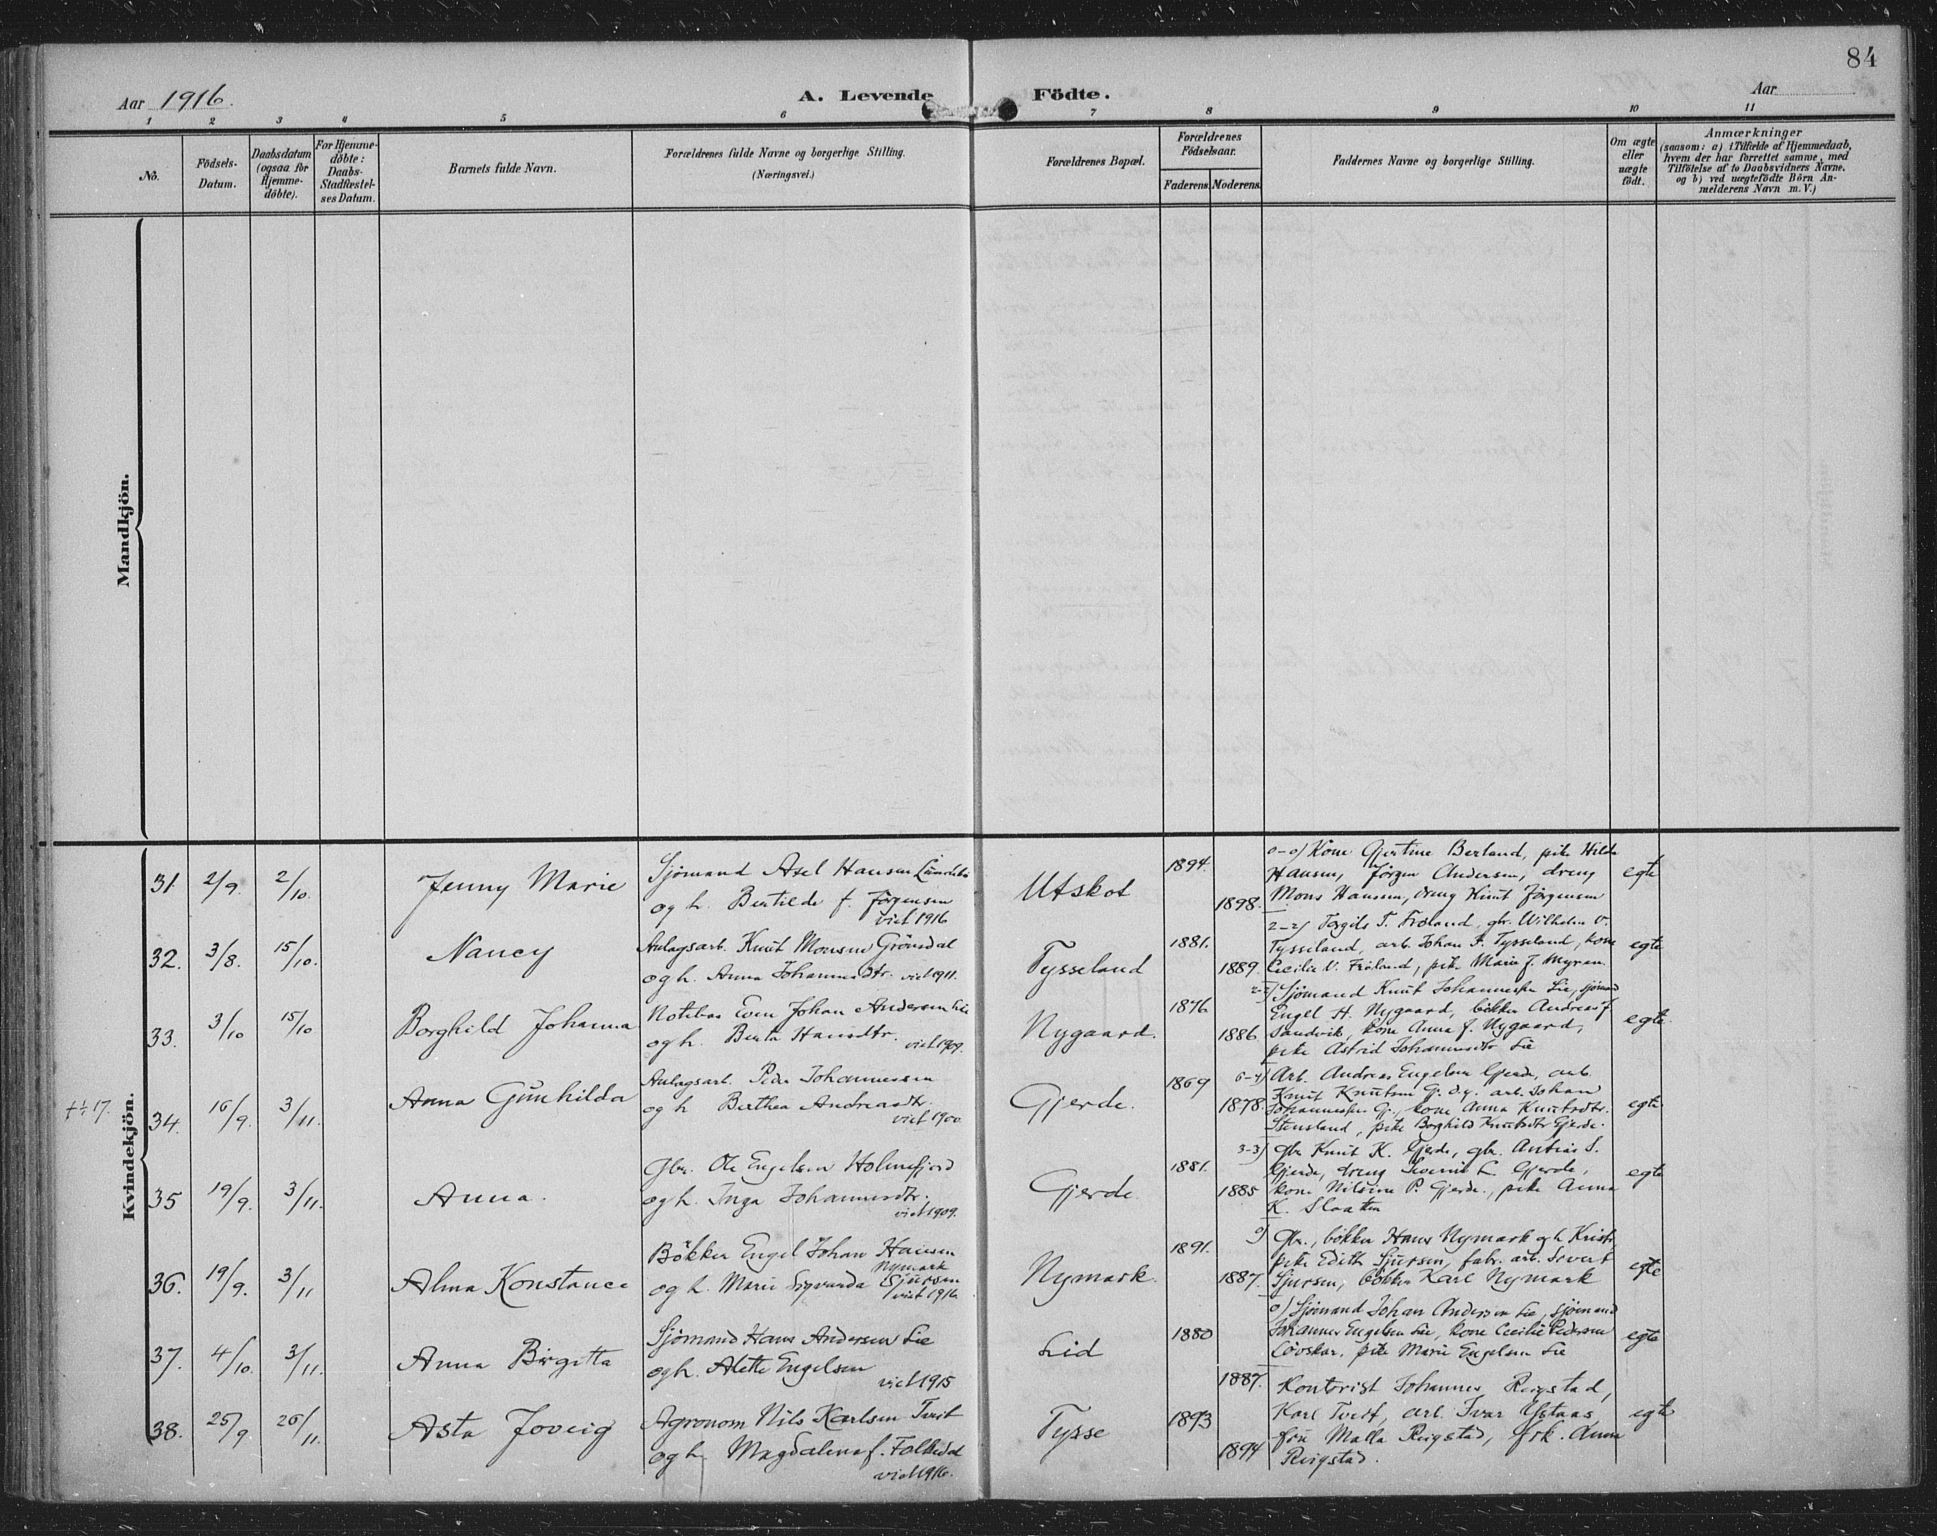 84
Aar 1916.
A. Levende Födte.
Aar
1 2 3 4 5 6 7 8 9 10 11
No.
Födsels-Datum.
Daabsdatum (ogsaa for Hjemme-döbte).
For Hjemme-döbte: Daabs-Stadfæstel-ses Datum.
Barnets fulde Navn.
Forældrenes fulde Navne og borgerlige Stilling.
(Næringsvei.)
Forældrenes Bopæl.
Forældrenes Födselsaar.
Faderens. Moderens.
Faddernes Navne og borgerlige Stilling.
Om ægte eller uægte födt.
Anmærkninger
(saasom: a) i Tilfælde af Hjemmedaab,
hvem der har forrettet samme, med
Tilföielse af to Daabsvidners Navne.
og b) ved uægtefödte Börn An-
melderens Navn m. V.)
Mandkjön.
Kvindekjön.
31. 2/9. 2/10. Jenny Marie
Sjömand Axel Hansen
og h. Bertilde f. Jörgensen
viet 1916
Utskot
1894.
1898.
o-o) Kone Gjertine Berland, pike Hilda
Hansen, Jörgen Andersen, dreng
Mons Hanssen, dreng Knut Jörgensen
egte
32. 3/8. 15/10. Nancy
Anlagsarb. Knut Monsen Grönsdal
og h. Anna Johannesdtr. viet 1911.
Tysseland
1881.
1889.
2-2) Torgils T. Fröland, gbr. Wilhelm V.
Tysseland, arb. Johan F. Tysseland, kone
Cecilie V. Fröland, pike Marie J. Myren
egte
33. 3/10 15/10 Borghild Johanna
Notebas Even Johan Andersen Lie
og h. Berta Hansdtr. viet 1909.
Nygaard.
1876
1886
2-2) Sjömand Knut Johannessen Lie, sjömand
Engel H. Nygaard, bökker Andreas J.
Sandvik, kone Anna J. Nygaard,
pike Astrid Johannesdtr Lie
egte.
17. 34. 16/9. 3/11. Anna Gunhilda
Anlagsarb. Peder Johannessen
og h Berthea Andreasdtr.
viet 1900
Gjerde.
1869
1878.
Arb. Andreas Engelsen Gjerde, arb.
Knut Knutsen G. og arb. Johan
Johannessen Gj., kone Anna Knutsdtr.
Stensland, pike Borghild Knutsdtr Gjerde.
egte
35 19/9. 3/11. Anna.
Gbr. Ole Engelsen Holmefjord
og h. Inga Johannesdtr.
viet 1909.
Gjerde
1881.
1885
3-3) Gbr Knut K. Gjerde, gbr. Andreas S.
Gjerde, dreng Severin L. Gjerde,
kone Nilsine P. Gjerde, pike Anna
K. Slaatten
egte
36. 19/9. 3/11 Alma Konstance
Bökker Engel Johan Hansen
Nymark
og h. Marie Sigvarda Sjursen
viet 1916
Nymark.
1891.
1887.
o) Gbr., bökker Hans Nymark og h Kristi
pike Edith Sjursen, fabr. arb. Severt
Sjursen, bökker Karl Nymark
egte
37. 4/10. 3/11. Anna Birgitta
Sjömand Hans Andersen Lie
og h. Alette Engelsen
viet 1915
Lid
1880
1887.
o) Sjömand Johan Andersen Lie, sjömand
Johannes Engelsen Lie, kone Cecilie Pedersen
Lövskar, pike Marie Engelsen Lie
egte
38. 25/9. 26/11. Asta Joveig
Agronom Nils Karlsen Tveit
og h. Magdalena f. Folkedal
viet 1916.
Tysse
1893
1894
Kontorist Johannes Reigstad,
Karl Tveit, arb. Ivar Ystaas
fru Malla Reigstad, frk. Anna
Reigstad.
egte